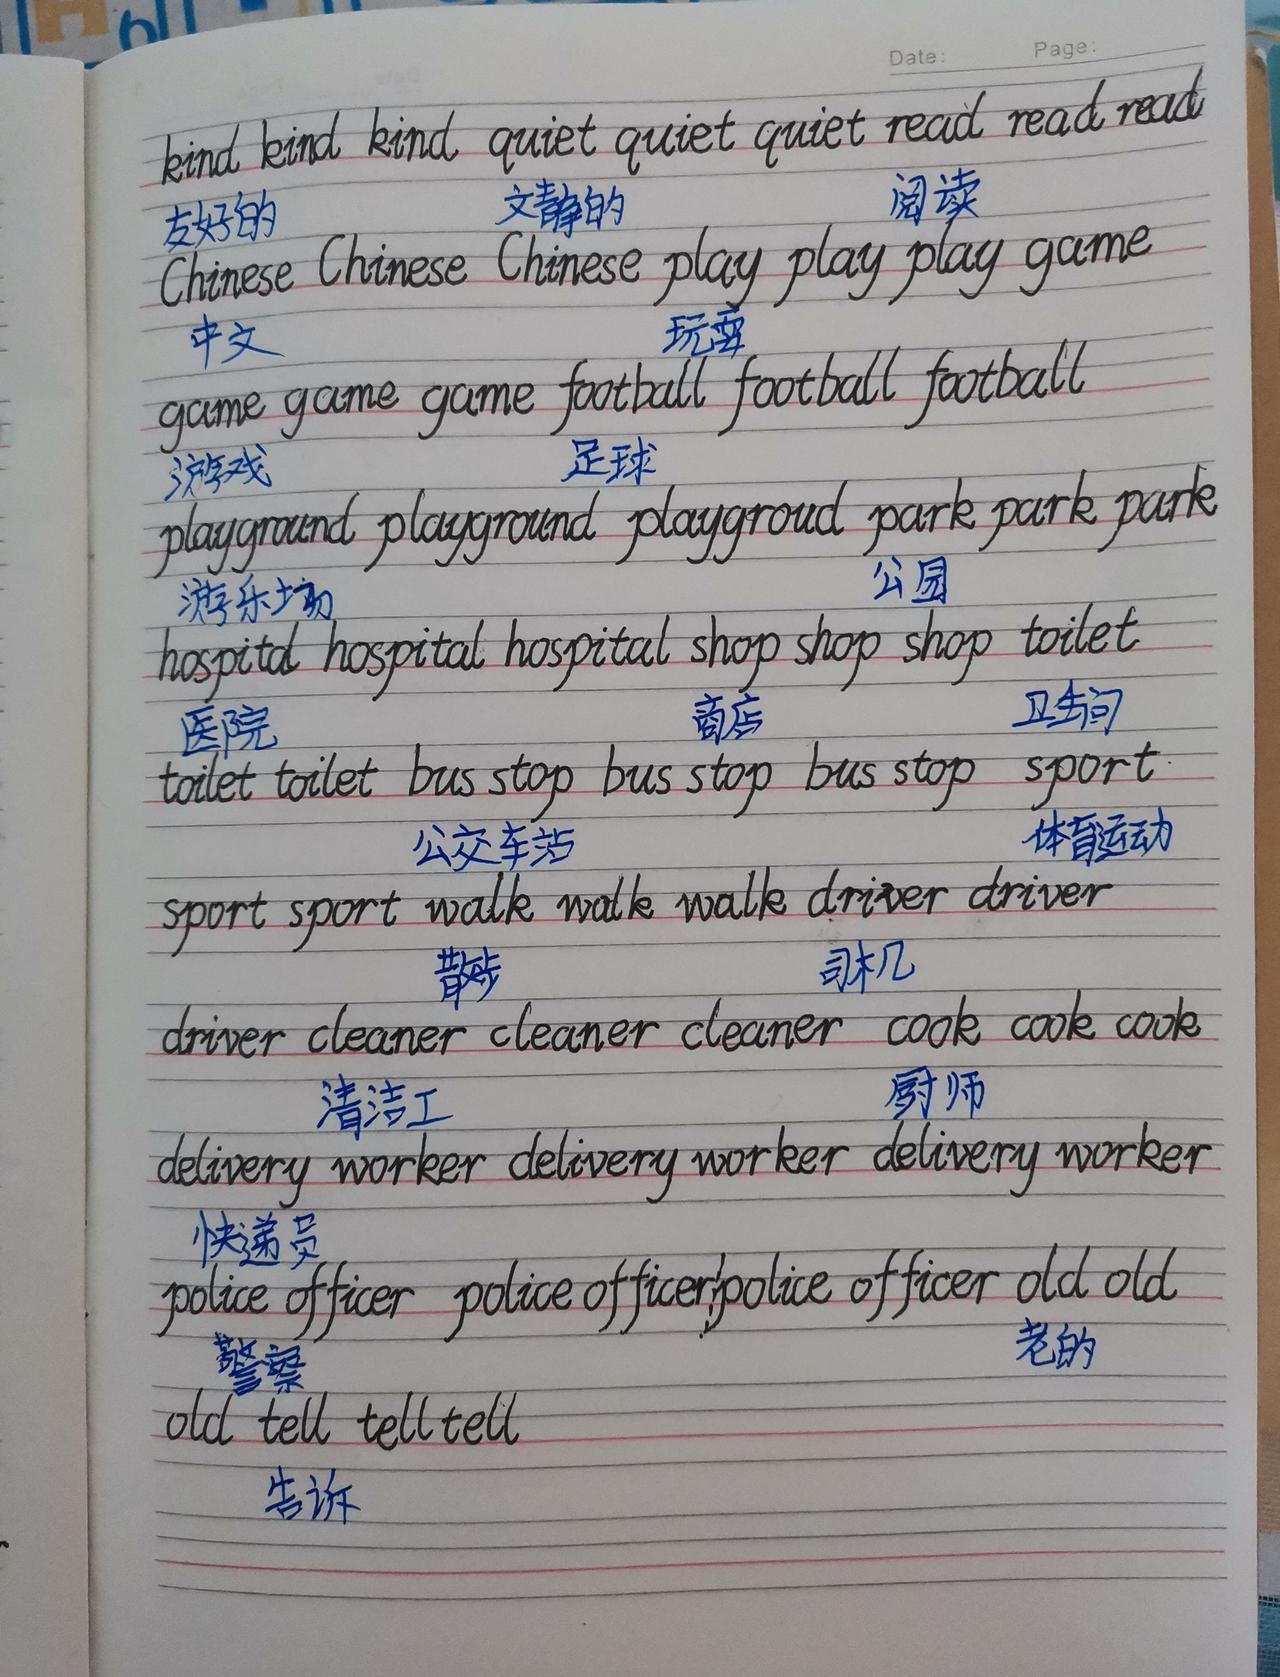 Date: Page:
kind kind kind quiet quiet quiet read read read
友好的 文静的 阅读
Chinese Chinese Chinese play play play game
中文 玩耍
game game game football football football
游戏 足球
playground playground playgroud park park park
游乐场 公园
hospital hospital hospital shop shop shop toilet
医院 商店 卫生间
toilet toilet bus stop bus stop bus stop sport
公交车站 体育运动
sport sport walk walk walk driver driver
散步 司机
driver cleaner cleaner cleaner cook cook cook
清洁工 厨师
delivery worker delivery worker delivery worker
快递员
police officer police officer police officer old old
警察 老的
old tell tell tell
告诉